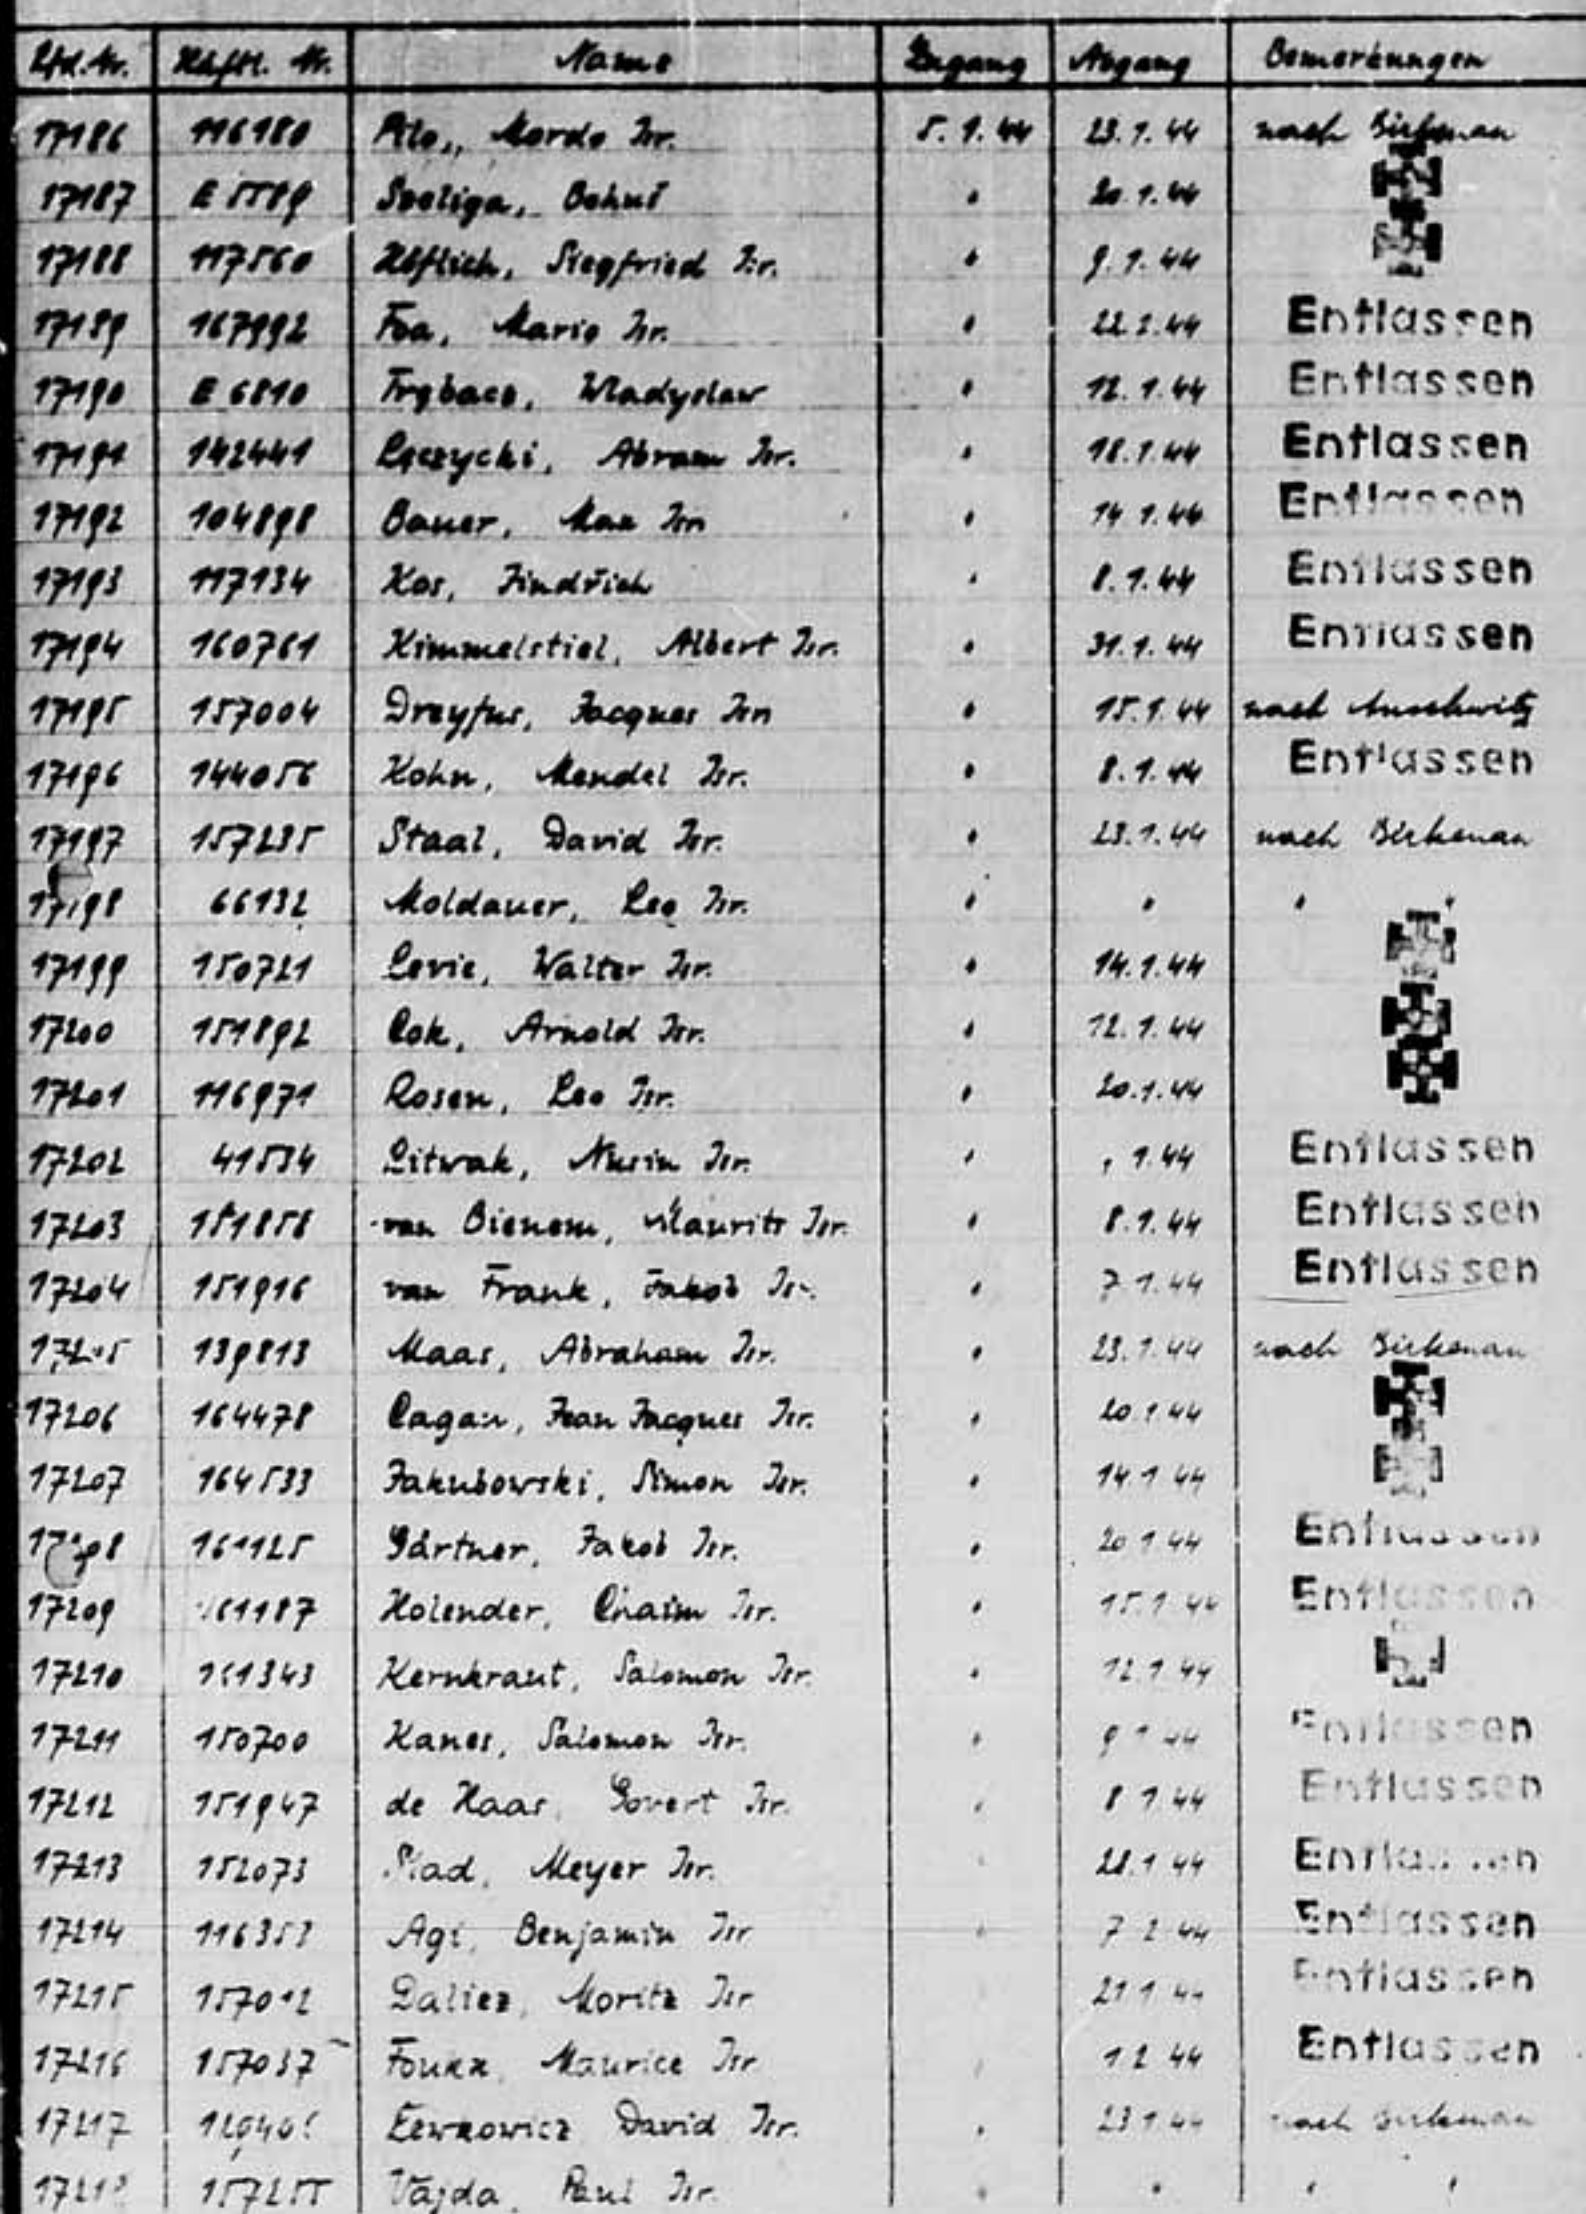 Lfd. Nr. Häftl. Nr. Name Zugang Abgang Bemerkungen
17186 116180 Pilo, Mordo Isr. 5.1.44 23.1.44 nach Birkenau
17187 E 5589 Seeliga, Bohuš " 20.1.44
17188 117560 Höflich, Siegfried Isr. " 9.1.44
17189 167992 Foa, Mario Isr. " 22.2.44 Entlassen
17190 E 6810 Trębacz, Wladyslaw " 12.1.44 Entlassen
17191 142441 Łęczycki, Abram Isr. " 18.1.44 Entlassen
17192 104898 Bauer, Max Isr. " 14.1.44 Entlassen
17193 117134 Kos, Jindřich " 8.1.44 Entlassen
17194 160761 Kimmelstiel, Albert Isr. " 31.1.44 Entlassen
17195 157004 Dreyfus, Jacques Isr. " 15.1.44 nach Auschwitz
17196 144056 Kohn, Mendel Isr. " 8.1.44 Entlassen
17197 157235 Staal, David Isr. " 23.1.44 nach Birkenau
17198 66132 Moldauer, Leo Isr. " " " "
17199 150721 Levie, Walter Isr. " 14.1.44
17200 151892 Cok, Arnold Isr. " 12.1.44
17201 116971 Rosen, Leo Isr. " 20.1.44
17202 41534 Litwak, Nusin Isr. " 1.44 Entlassen
17203 151858 van Bienem, Maurits Isr. " 8.1.44 Entlassen
17204 151916 van Frank, Jakob Isr. " 7.1.44 Entlassen
17205 139813 Maas, Abraham Isr. " 23.1.44 nach Birkenau
17206 164478 Cagan, Jean Jacques Isr. " 20.1.44
17207 164533 Jakubowski, Simon Isr. " 14.1.44
161125 Gärtner, Jakob Isr. " 20.1.44 Entlassen
17209 161187 Holender, Chaim Isr. " 15.1.44 Entlassen
17210 161343 Kernkraut, Salomon Isr. " 12.1.44
17211 150700 Kanes, Salomon Isr. " 9.1.44 Entlassen
17212 151947 de Haas, Govert Isr. " 8.1.44 Entlassen
17213 152073 Meyer Isr. " 28.1.44 Entlassen
17214 116353 Agi, Benjamin Isr. " 7.2.44 Entlassen
17215 157012 Daliez, Moritz Isr. 21.1.44 Entlassen
17216 157037 Maurice Isr. 1.2.44 Entlassen
17217 Lewkowicz David Isr. " 23.1.44 nach Birkenau
157255 Vajda, Paul Isr. " " " "